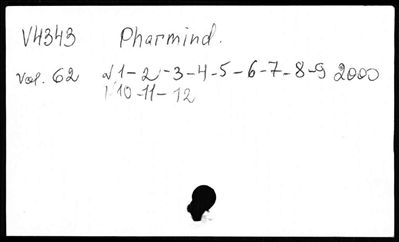 V4343 Pharmind.
vol. 62 √1-2-3-4-5-6-7-8-9 2000
10-11-12